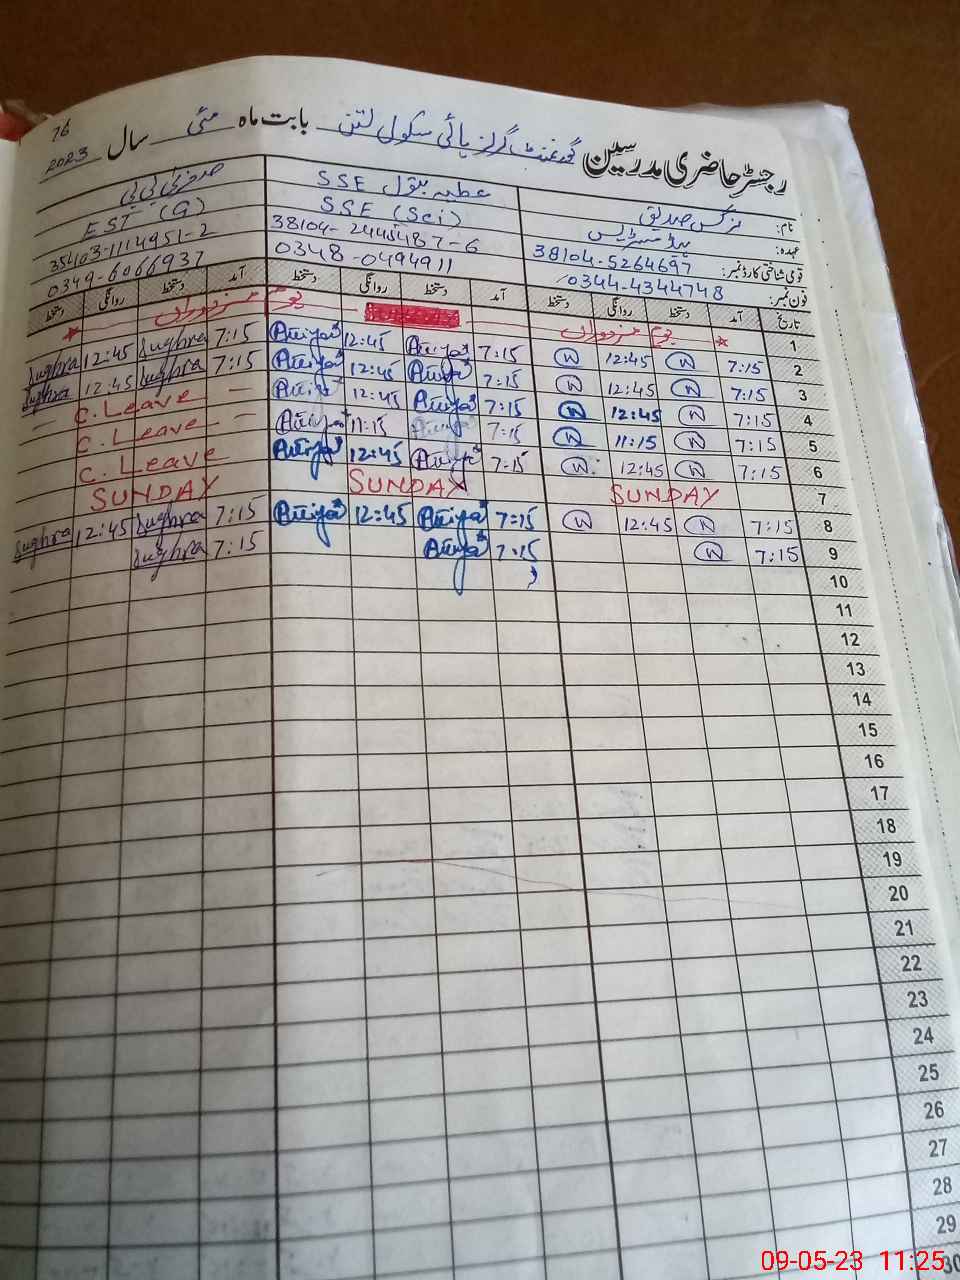 76
رجسٹر حاضری مدرسین گورنمنٹ گرلز ہائی سکول لتن بابت ماہ مئی سال 2023
نام: نرگس صدیق عطیہ بتول SSE صغریٰ بی بی
عہدہ: ہیڈ مسٹریس SSE (Sci) EST (G)
قومی شناختی کارڈ نمبر: 38104-5264697 38104-2445487-6 35403-1114951-2
فون نمبر: 0344-4344748 0348-0494911 0349-6066937
تاریخ آمد دستخط روانگی دستخط آمد دستخط روانگی دستخط آمد دستخط روانگی دستخط
1 یوم مزدوراں یوم مزدوراں
2 7:15 12:45 7:15 Attiya 12:45 Attiya 7:15 Sughra 12:45 Sughra
3 7:15 12:45 7:15 Attiya 12:45 Attiya 7:15 Sughra 12:45 Sughra
4 7:15 12:45 7:15 Attiya 12:45 Attiya — C. Leave
5 7:15 11:15 7:15 Attiya 11:15 Attiya — C. Leave
6 7:15 12:45 7:15 Attiya 12:45 Attiya C. Leave
7 SUNDAY SUNDAY SUNDAY
8 7:15 12:45 7:15 Attiya 12:45 Attiya 7:15 Sughra 12:45 Sughra
9 7:15 7:15 Attiya 7:15 Sughra
10
11
12
13
14
15
16
17
18
19
20
21
22
23
24
25
26
27
28
29
30
09-05-23 11:25